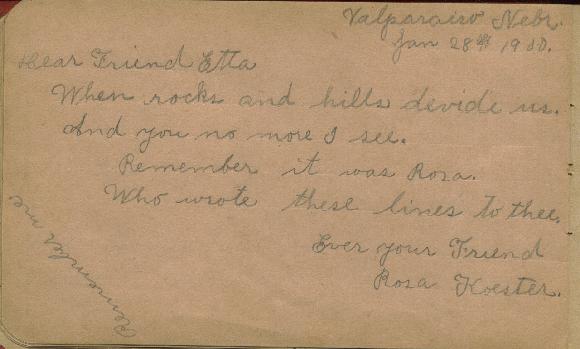 Valparaiso Nebr.
Jan 28th 1910.
Dear Friend Etta
When rocks and hills devide us.
And you no more I see.
Remember it was Rosa.
Who wrote these lines to thee.
Ever your Friend
Rosa Koester.
Remember me